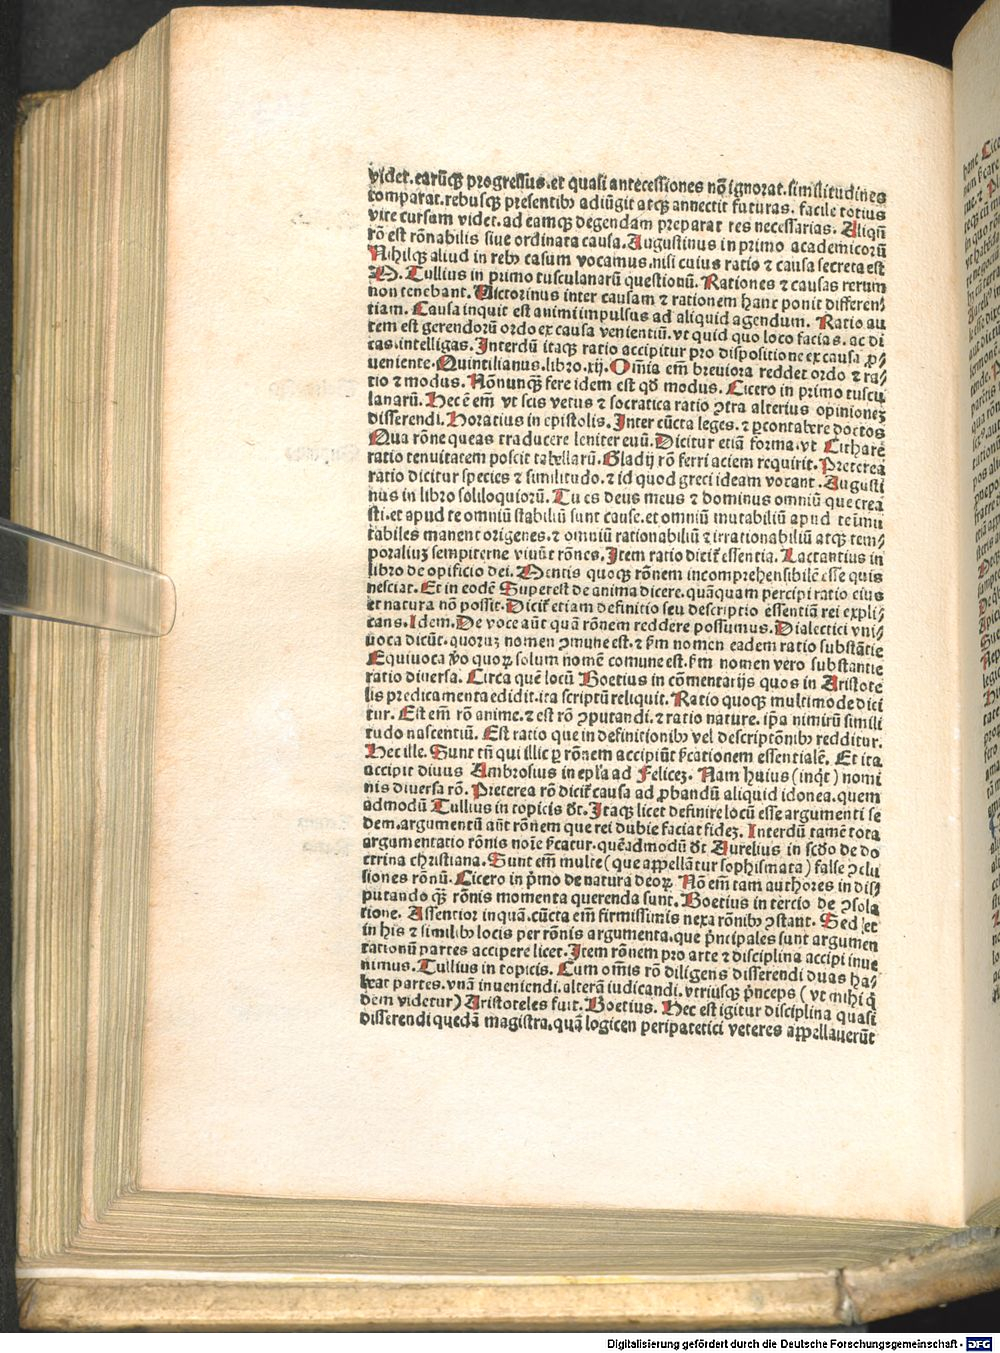 videt.earūqꝫ progressus.et quasi antecessiones nō ignorat.similitudines
comparat.rebusqꝫ presentibꝰ adiūgit atqꝫ annectit futuras. facile totius
vite cursam videt.ad eamqꝫ degendam preparat res necessarias. Aliqn̄
rō est rōnabilis siue ordinata causa. Augustinus in primo academicorū
Nihilqꝫ aliud in rebꝰ casum vocamus.nisi cuius ratio ⁊ causa secreta est
M. Tullius in primo tusculanarū questionū. Rationes ⁊ causas rerum
non tenebant. Victorinus inter causam ⁊ rationem hanc ponit differen⸗
tiam. Causa inquit est animi impulsus ad aliquid agendum. Ratio au
tem est gerendorū ordo ex causa venientiū.vt quid quo loco facias.ac di
cas.intelligas. Interdū itaqꝫ ratio accipitur pro dispositione ex causa ꝓ⸗
ueniente. Quintilianus.libro.xij. Om̄ia em̄ breuiora reddet ordo ⁊ ra⸗
tio ⁊ modus. Nōnunqꝫ fere idem est qd̄ modus. Cicero in primo tuscu
lanarū. Hec ē em̄ vt scis vetus ⁊ socratica ratio ꝯtra alterius opinionez
disserendi. Horatius in epistolis. Inter cūcta leges.⁊ ꝑcontabere doctos
Qua rōne queas traducere leniter euū. Dicitur etiā forma.vt Cithare
ratio tenuitatem poscit tabellarū. Gladij rō ferri aciem requirit. Preterea
ratio dicitur species ⁊ similitudo.⁊ id quod greci ideam vocant. Augusti
nus in libro soliloquiorū. Tu es deus meus ⁊ dominus omniū que crea
sti.et apud te omniū stabiliū sunt cause.et omniū mutabiliū apud te īmu
tabiles manent origenes.⁊ omniū rationabiliū ⁊ irrationabiliū atqꝫ tem⸗
poraliuz sempiterne viuūt rōnes. Item ratio dicit̄ essentia. Lactantius in
libro de opificio dei. Mentis quoqꝫ rōnem incomprehensibilē esse quis
nesciat. Et in eodē Superest de anima dicere.quāquam percipi ratio eius
et natura nō possit. Dicit̄ etiam definitio seu descriptio essentiā rei expli⸗
cans. Idem. De voce aūt quā rōnem reddere possumus. Dialectici vni⸗
uoca dicūt.quoruz nomen ꝯmune est.⁊ ẜm nomen eadem ratio substātie
Equiuoca v̄o quoꝝ solum nomē comune est.ẜm nomen vero substantie
ratio diuersa. Circa quē locū Boetius in cōmentarijs quos in Aristote
lis predicamenta edidit.ita scriptū reliquit. Ratio quoqꝫ multimode dici
tur. Est em̄ rō anime.⁊ est rō ꝯputandi.⁊ ratio nature. ip̄a nimirū simili
tudo nascentiū. Est ratio que in definitionibꝰ vel descriptōnibꝰ redditur.
Hec ille. Sunt tn̄ qui illic ꝑ rōnem accipiūt p̄cationem essentialē. Et ita
accipit diuus Ambrosius in epl̄a ad Felicez. Nam huius (inqt̄) nomi
nis diuersa rō. Preterea rō dicit̄ causa ad ꝓbandū aliquid idonea.quem
admodū Tullius in topicis d̄t. Itaqꝫ licet definire locū esse argumenti se
dem.argumentū aūt rōnem que rei dubie faciat fidez. Interdū tamē tota
argumentatio rōnis noīe p̄catur.quēadmodū d̄t Aurelius in scd̄o de do
ctrina christiana. Sunt em̄ multe (que appellātur sophismata) false ꝯclu
siones rōnū. Cicero in p̄mo de natura deoꝝ. Nō em̄ tam authores in dis⸗
putando qꝫ rōnis momenta querenda sunt. Boetius in tercio de ꝯsola
tione. Assentior inquā.cūcta em̄ firmissimis nexa rōnibꝰ ꝯstant. Sed et
in his ⁊ similibꝰ locis per rōnis argumenta.que p̄ncipales sunt argumen
rationū partes accipere licet. Item rōnem pro arte ⁊ disciplina accipi inue
nimus. Tullius in topicis. Cum om̄is rō diligens disserendi duas ha⸗
beat partes.vnā inueniendi.alterā iudicandi.vtriusqꝫ p̄nceps (vt mihi q̄
dem videtur) Aristoteles fuit. Boetius. Hec est igitur disciplina quasi
disserendi quedā magistra.quā logicen peripatetici veteres appellauerūt
Digitalisierung gefördert durch die Deutsche Forschungsgemeinschaft - DFG